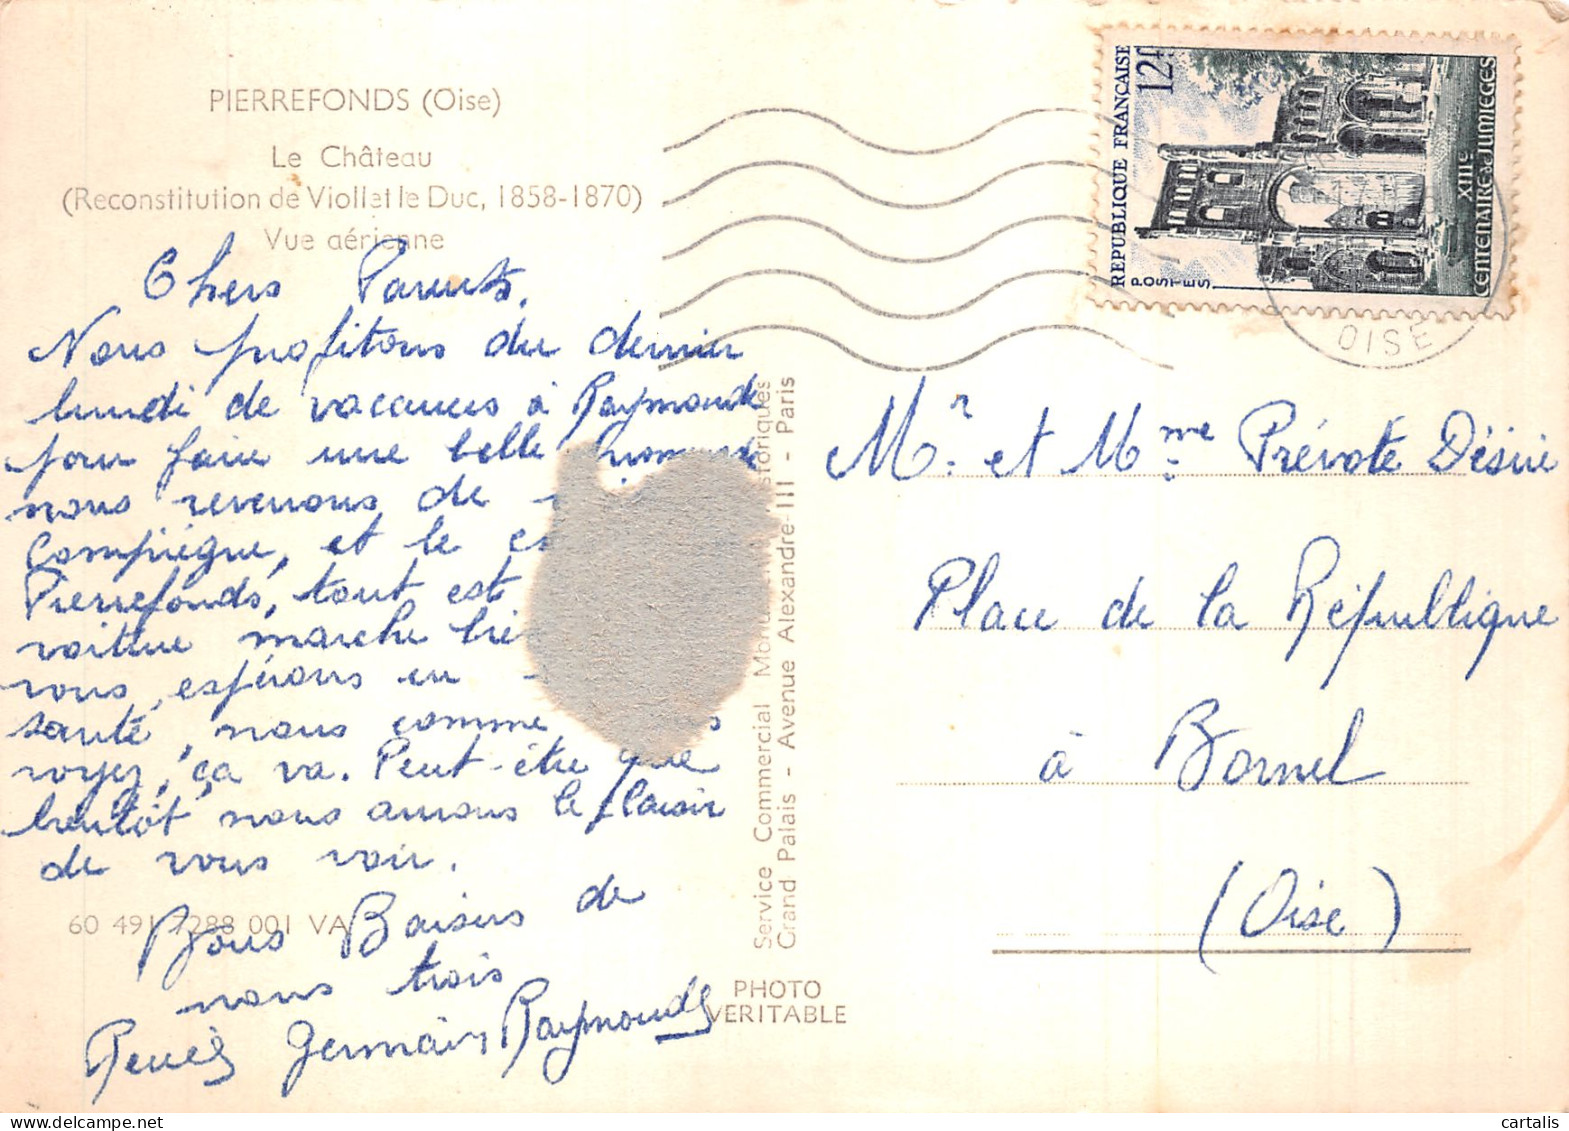 PIERREFONDS (Oise)
Le Château
(Reconstitution de Viollet le Duc, 1858-1870)
Vue aérienne
Chers Parents,
Nous profitons du dernier
lundi de vacances à Raymonde
pour faire une belle
nous revenons de
Compiègne, et le
Pierrefonds, tout est
voiture marche
vous espérons en
santé, nous comme
voyez, ça va. Peut-être que
bientôt nous aurons le plaisir
de vous voir.
Bons Baisers de
nous trois
Renée Germain Raymonde
60 491 7288 001 VA
Service Commercial Monuments Historiques
Grand Palais - Avenue Alexandre-III - Paris
PHOTO
VERITABLE
REPUBLIQUE FRANÇAISE
12f
POSTES
XIIIe
CENTENAIRE de JUMIEGES
OISE
Mr. et Mme Prévote Désiré
Place de la République
à Bornel
(Oise)
cartalis